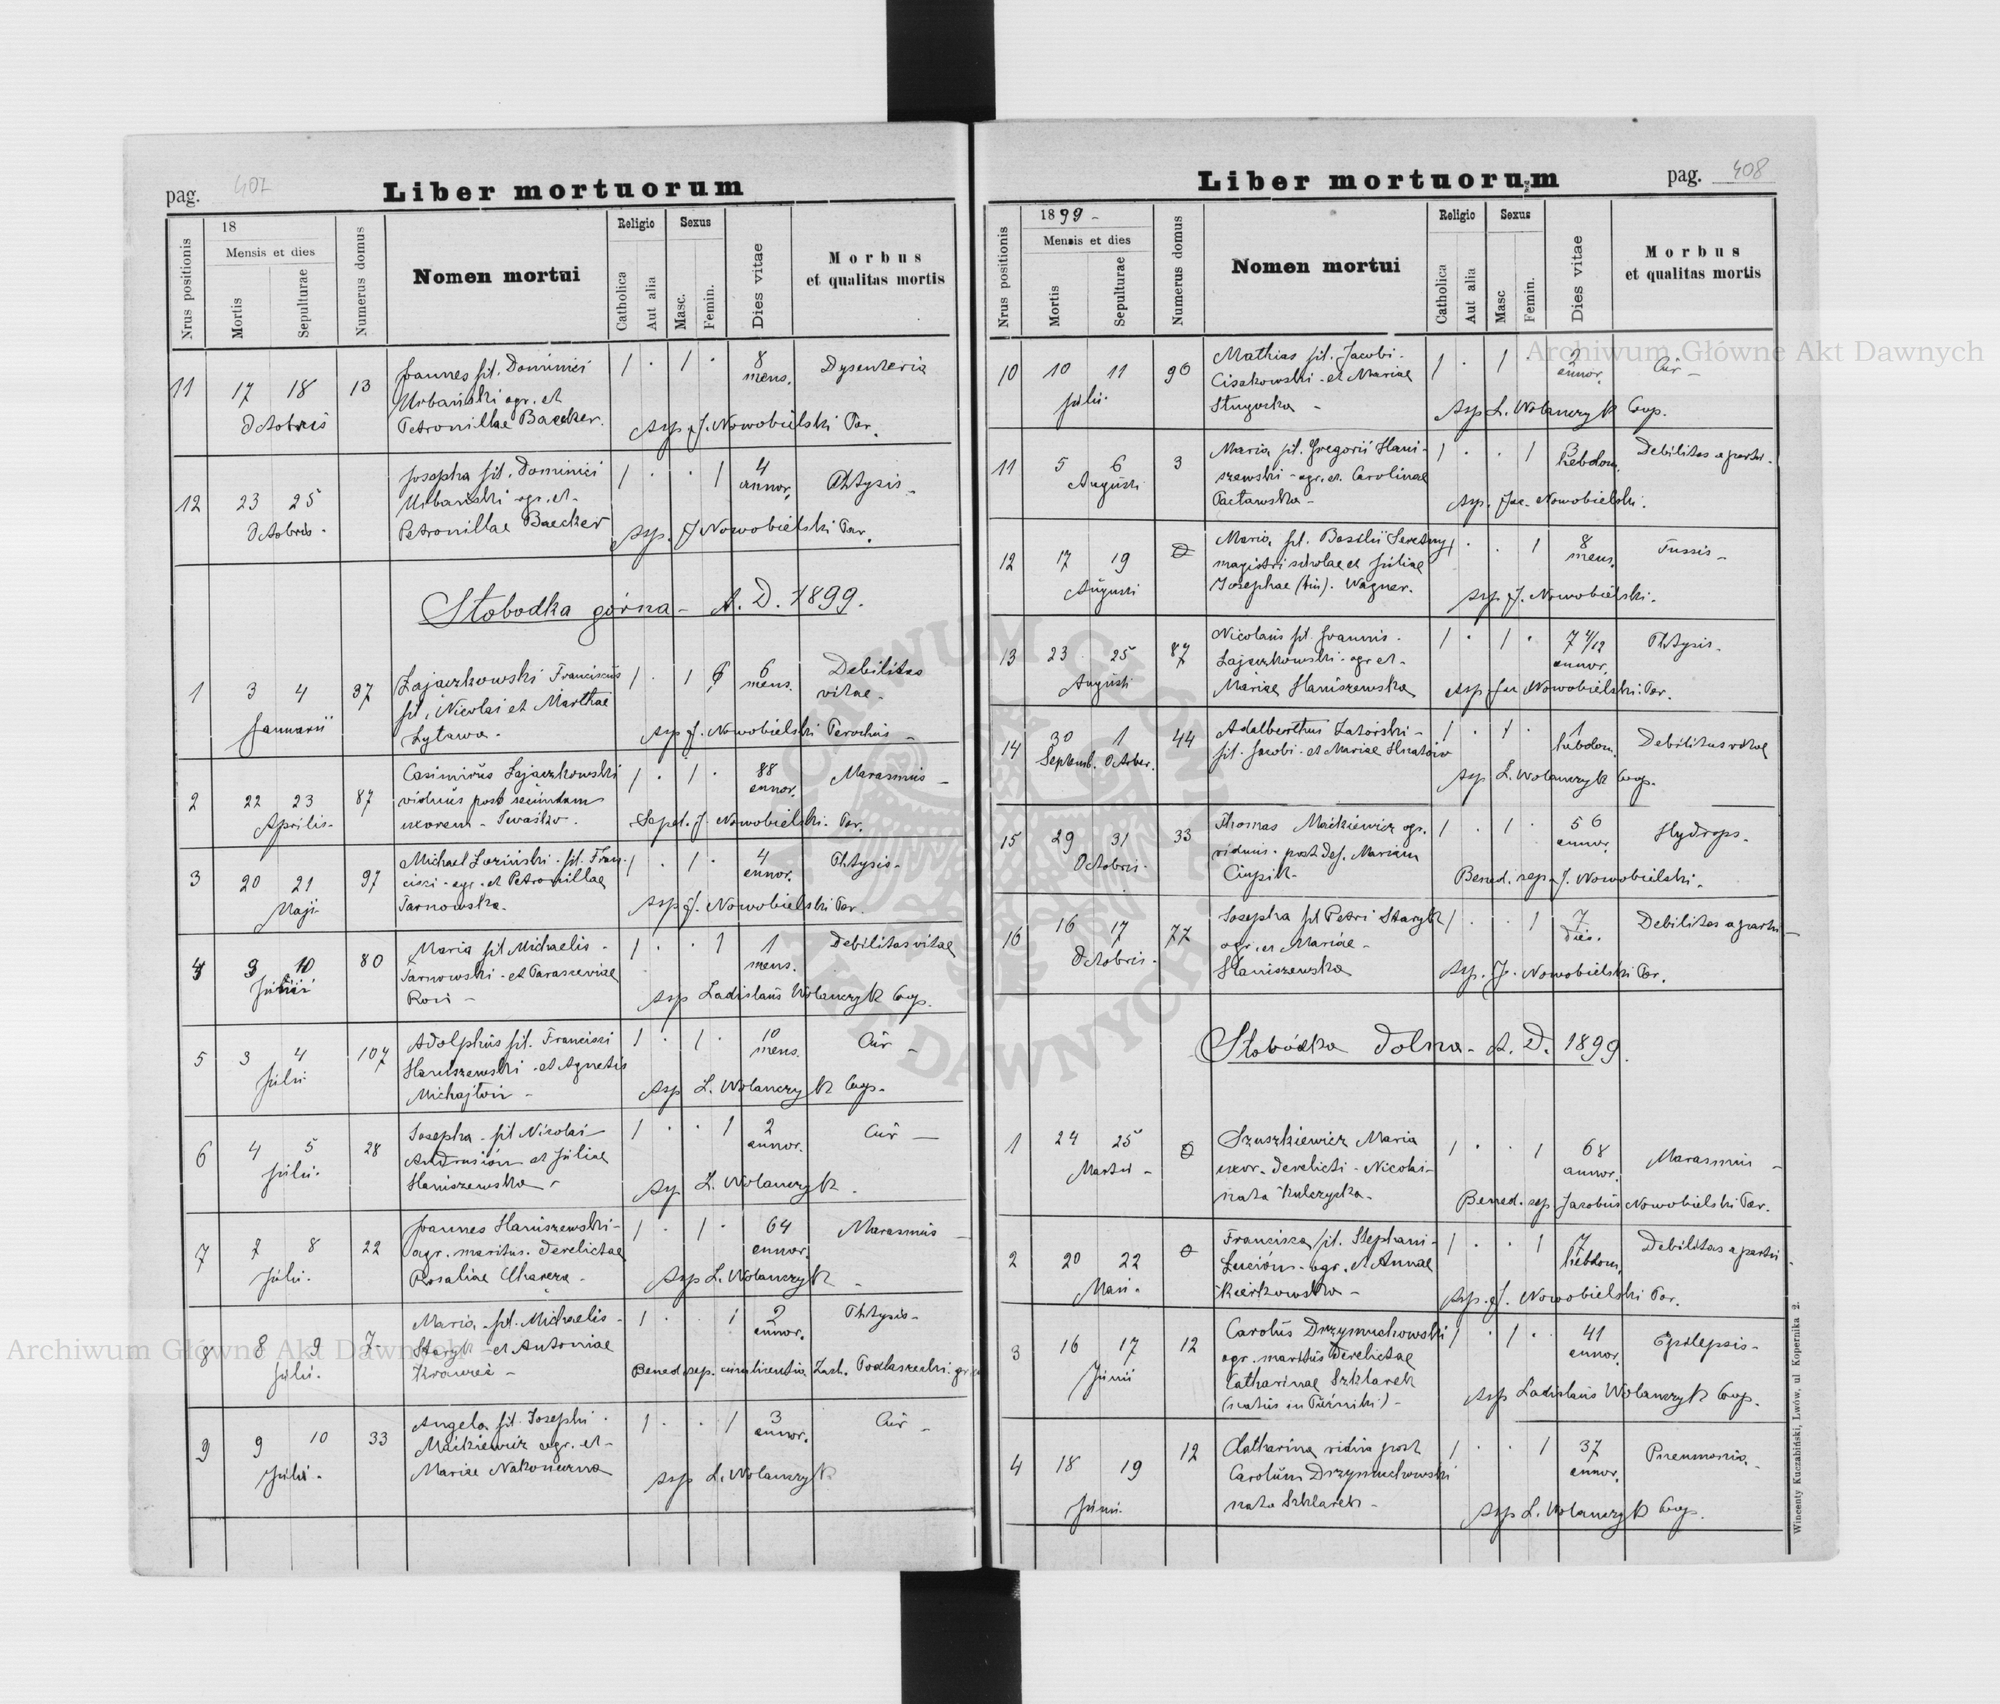 pag. 407
Liber mortuorum
Nrus positionis
18
Mensis et dies
Mortis
Sepulturae
Numerus domus
Nomen mortui
Religio
Catholica
Aut alia
Sexus
Masc.
Femin.
Dies vitae
Morbus
et qualitas mortis
11 17 18 13 Joannes fil. Dominici 1 . 1 . 8 Dysenteria
Urbański agr. et mens.
Octobris Petronillae Baecker. Asp. J. Nowobielski Par.
12 23 25 Josepha fil. Dominici 1 . . 1 4 Phtysis
Urbański agr. et annor.
Octobris. Petronillae Baecker Asp. J. Nowobielski Par.
Słobodka górna - A. D. 1899.
1 3 4 37 Zajaczkowski Franciscus 1 . 1 6 Debilitas
Januarii fil. Nicolai et Marthae mens. vitae
Lytawa. Asp J. Nowobielski Parochus
2 22 23 87 Casimirus Zajaczkowski 1 . 1 . 88 Marasmus
Aprilis viduus post secundum annor.
uxorem Iwaśko. Sepel. J. Nowobielski. Par.
3 20 21 97 Michael Łoziński. fil. Fran- 1 . 1 . 4 Phtysis
Maji cisci agr. et Petronillae annor.
Tarnowska. Asp J. Nowobielski Par.
4 9 10 80 Maria fil. Michaelis 1 . . 1 1 Debilitas vitae
Tarnowski et Parasceviae mens.
Asp Ladislaus Wolanczyk Coop.
5 3 4 107 Adolphus fil. Francisci 1 . 1 . 10
Julii Haniszewski et Agnetis mens.
Asp L. Wolanczyk Coop.
6 4 5 28 Josepha fil. Nicolai 1 . . 1 2
Julii. Andrusiów et Juliae annor.
Haniszewska Asp L. Wolanczyk.
7 7 8 22 Joannes Haniszewski 1 . 1 . 64 Marasmus
Julii. agr. maritus derelictae annor.
Rosaliae Asp L. Wolanczyk
8 8 9 7 Maria fil. Michaelis 1 . . 1 2 Phtysis
Julii. Staryk et Antoniae annor.
Krawiec Bened. sep. cum licentia Podlaszecki
9 9 10 33 Angela fil. Josephi 1 . . 1 3
Julii. Maćkiewicz agr. et annor.
Mariae Nakoneczna Asp L. Wolanczyk
Liber mortuorum
pag. 408
Nrus positionis
1899
Mensis et dies
Mortis
Sepulturae
Numerus domus
Nomen mortui
Religio
Catholica
Aut alia
Sexus
Masc
Femin.
Dies vitae
Morbus
et qualitas mortis
10 10 11 90 Mathias fil. Jacobi 1 . 1 2
Julii. Cisakowski et Mariae annor.
Asp L. Wolanczyk Coop.
11 5 6 3 Maria fil. Gregorii Hani- 1 . . 1 3 Debilitas a partu.
Augusti szewski agr. et Carolinae hebdom.
Pactawska Asp. Jac. Nowobielski.
12 17 19 Maria fil. Basilii 1 . . 1 8 Tussis
Augusti magistri scholae et Juliae mens.
Josephae (bin). Wagner. Asp J. Nowobielski.
13 23 25 87 Nicolaus fil. Joannis 1 . 1 . 7 4/12 Phtysis
Augusti Zajaczkowski agr et annor.
Mariae Haniszewska Asp. Jac Nowobielski. Par.
14 30 1 44 Adalberthus Zatorski 1 . 1 . 1 Debilitas vitae
Septemb. October. fil. Jacobi et Mariae Hnatów hebdom.
Asp L. Wolanczyk Coop.
15 29 31 33 Thomas Maćkiewicz agr. 1 . 1 . 56 Hydrops
Octobris. viduus post def. Mariam annor.
Ciupik Bened. sep. J. Nowobielski.
16 16 17 77 Josepha fil Petri Staryk 1 . . 1 7 Debilitas a partu
Octobris. agr. et Mariae dies.
Haniszewska Asp. J. Nowobielski Par.
Słobódka dolna - A. D. 1899.
1 24 25 Szuszkiewicz Maria 1 . . 1 68 Marasmus
Martii uxor derelicti Nicolai annor.
nata Kulczycka Bened. sep Jacobus Nowobielski Par.
2 20 22 Francisca fil. Stephani 1 . . 1 7 Debilitas a partu
Maii. Łuciów agr. et Annae hebdom.
Kierkowska Asp. J. Nowobielski Par.
3 16 17 12 Carolus Drzymuchowski 1 . 1 . 41 Epilepsis
Junii agr. maritus derelictae annor.
Catharinae Szklarek Asp Ladislaus Wolanczyk Coop.
4 18 19 12 Catharina vidua post 1 . . 1 37 Pneumonia.
Junii. Carolum Drzymuchowski annor.
nata Szklarek Asp L. Wolanczyk Coop.
Wincenty Kuczabiński, Lwów, ul Kopernika 2.
Archiwum Główne Akt Dawnych
Archiwum Główne Akt Dawnych
ARCHIWUM GŁÓWNE AKT DAWNYCH